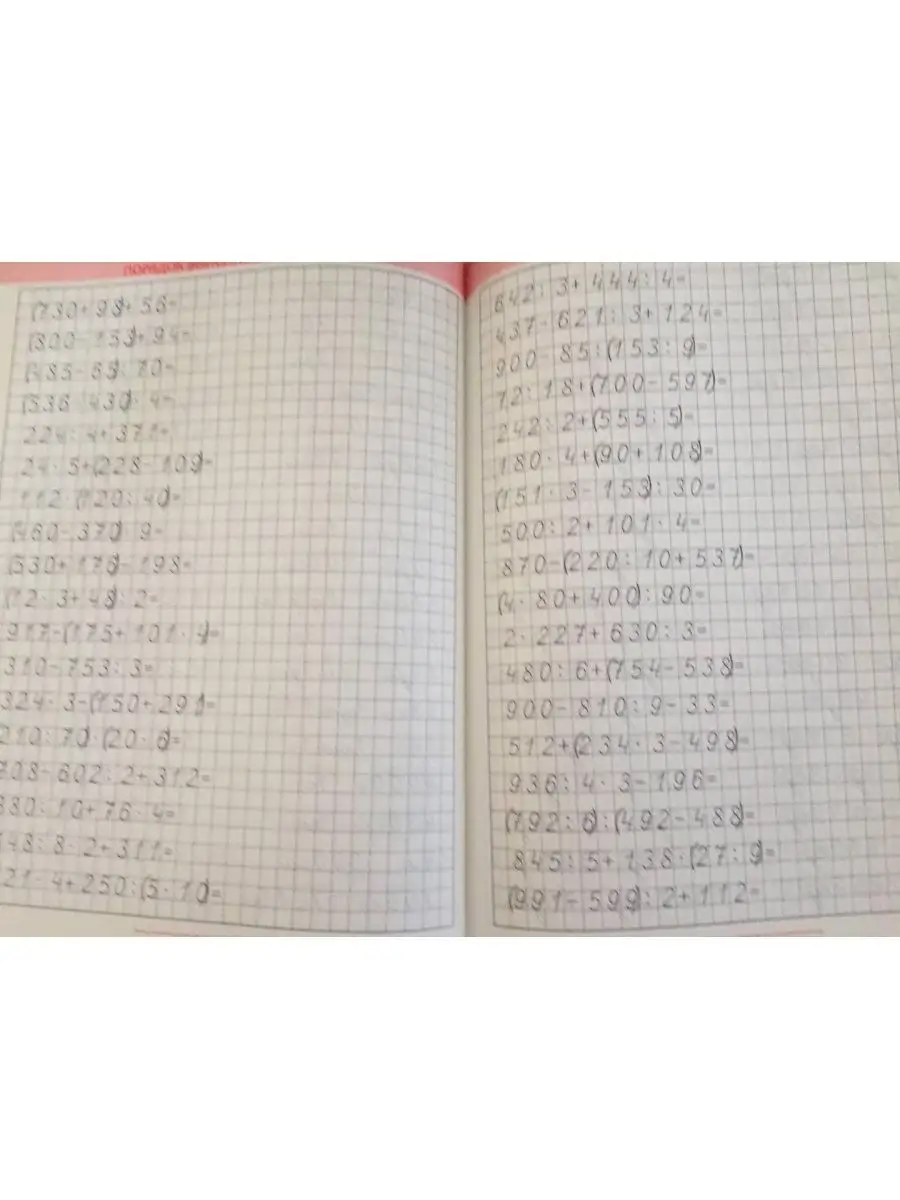 (730+98)+56=
(300-153)+94=
(485-65):70=
(536-430)·4=
224:4+371=
24·5+(228-109)=
112·(120:40)=
(460-370):9=
(530+176)-198=
(12·3+48):2=
917-(175+101·4)=
310-753:3=
324·3-(150+291)=
210:70)·(20·6)=
708-602:2+312=
880:10+76·4=
48:8·2+311=
21·4+250:(5·10)=
642:3+444:4=
437-621:3+124=
900-85:(153:9)=
72:18+(700-597)=
242:2+(555:5)=
180·4+(90+108)=
(151·3-153):30=
500:2+101·4=
870-(220:10+537)=
(4·80+400):90=
2·227+630:3=
480:6+(754-538)=
900-810:9-33=
512+(234·3-498)=
936:4·3-196=
(792:6):(492-488)=
845:5+138·(27:9)=
(991-599):2+112=